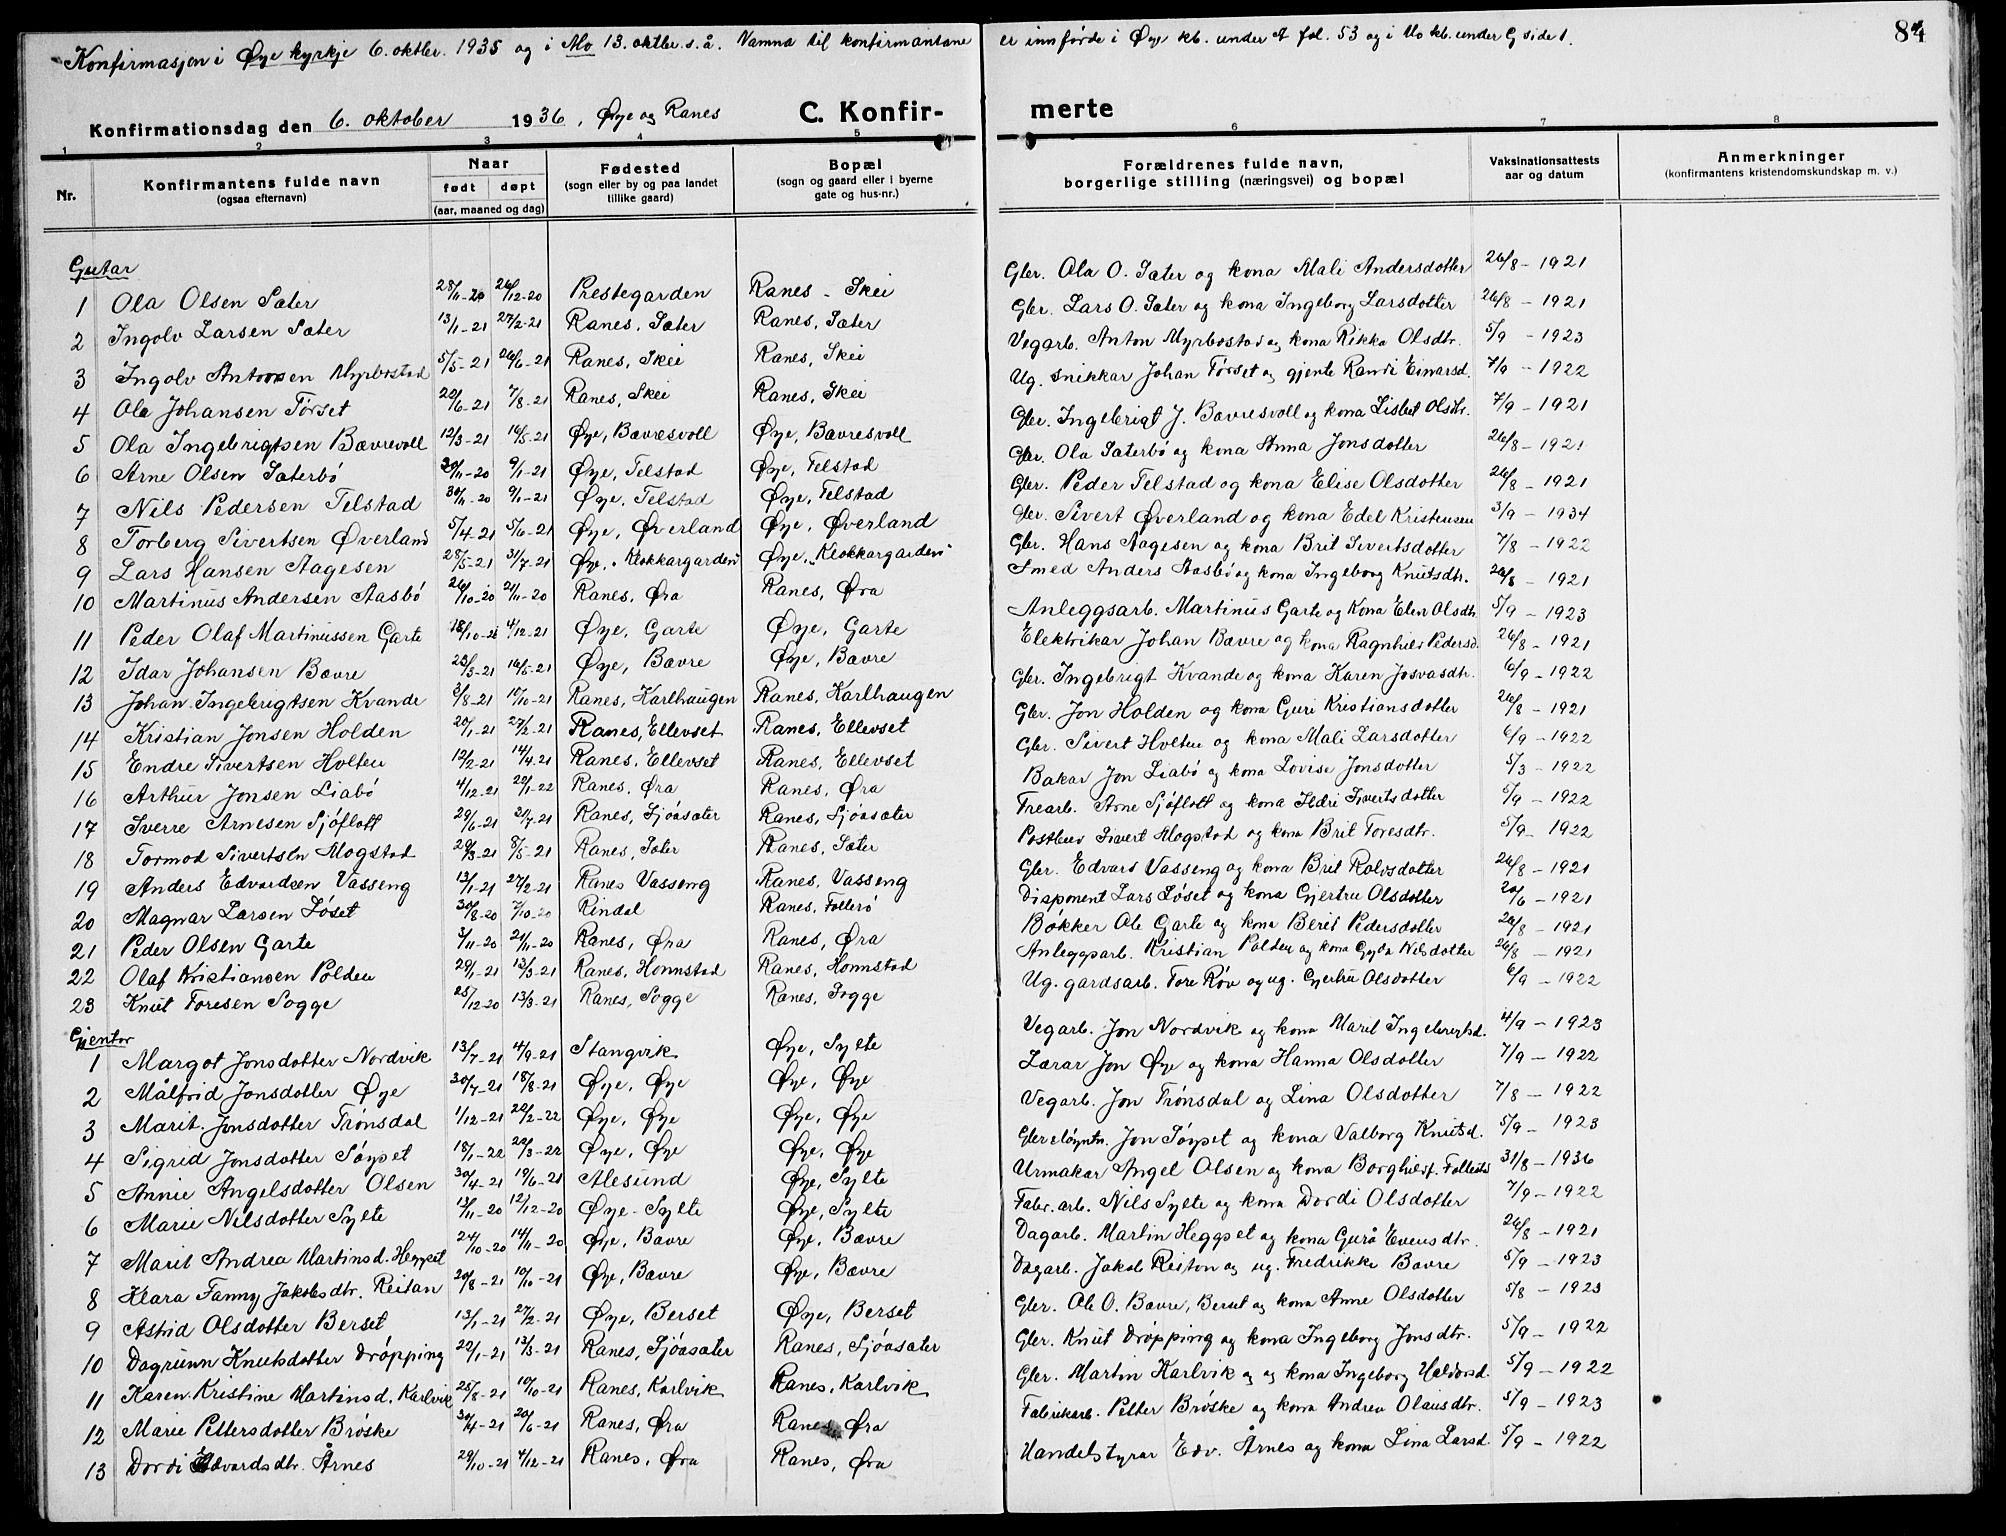 Konfirmasjon i Øye kyrkje 6. oktbr. 1935 og i Mo 13. oktbr. s. å. Namna til konfirmantane er innførde i Øye kb. under A fol. 53 og i Mo kb. under G side 1.
84
Konfirmationsdag den 6. oktober 1936, Øye og Ranes
C. Konfir- merte
1 2 3 4 5 6 7 8
Nr. Konfirmantens fulde navn (ogsaa efternavn) Naar født døpt (aar, maaned og dag) Fødested (sogn eller by og paa landet tillike gaard) Bopæl (sogn og gaard eller i byerne gate og hus-nr.) Forældrenes fulde navn, borgerlige stilling (næringsvei) og bopæl Vaksinationsattests aar og datum Anmerkninger (konfirmantens kristendomskundskap m. v.)
Gutar
1 Ola Olsen Sæter 28/11-20 26/12-20 Prestegarden Ranes - Skei Gbr. Ola O. Sæter og kona Mali Andersdotter 26/8 - 1921
2 Ingolv Larsen Sæter 13/1-21 27/2-21 Ranes, Sæter Ranes, Sæter Gbr. Lars O. Sæter og kona Ingeborg Larsdotter 26/8 - 1921
3 Ingolv Antonsen Myrbostad 5/5-21 26/6-21 Ranes, Skei Ranes, Skei Vegarb. Anton Myrbostad og kona Rikka Olsdtr. 5/9 - 1923
4 Ola Johansen Tørset 20/6-21 7/8-21 Ranes, Skei Ranes, Skei Ug. snikkar Johan Tørset og gjente Randi Einarsd. 7/9 - 1922
5 Ola Ingebrigtsen Bævrevoll 12/3-21 16/5-21 Øye, Bævresvoll Øye, Bævresvoll Gbr. Ingebrigt J. Bævresvoll og kona Lisbet Olsdtr. 7/9 - 1921
6 Arne Olsen Sæterbø 20/11-20 9/1-21 Øye, Telstad Øye, Telstad Gbr. Ola Sæterbø og kona Anna Jonsdotter 26/8 - 1921
7 Nils Pedersen Telstad 30/11-20 9/1-21 Øye, Telstad Øye, Telstad Gbr. Peder Telstad og kona Elise Olsdotter 26/8 - 1921
8 Torberg Sivertsen Øverland 5/4-21 5/6-21 Øye, Øverland Øye, Øverland Gbr. Sivert Øverland og kona Edel Kristensen 3/9 - 1934
9 Lars Hansen Aagesen 28/5-21 31/7-21 Øye, Klokkargarden Øye, Klokkargarden Gbr. Hans Aagesen og kona Brit Sivertsdotter 7/8 - 1922
10 Martinus Andersen Aasbø 26/10-20 21/11-20 Ranes, Øra Ranes, Øra Smed Anders Aasbø og kona Ingeborg Knutsdtr. 26/8 - 1921
11 Peder Olaf Martinussen Garte 18/10-21 4/12-21 Øye, Garte Øye, Garte Anleggsarb. Martinus Garte og kona Elen Olsdtr. 5/9 - 1923
12 Idar Johansen Bævre 23/3-21 16/5-21 Øye, Bævre Øye, Bævre Elektrikar Johan Bævre og kona Ragnhild Pedersd. 26/8 - 1921
13 Johan Ingebrigtsen Kvande 3/8-21 10/10-21 Ranes, Karlhaugen Ranes, Karlhaugen Gbr. Ingebrigt Kvande og kona Karen Josvasdtr. 6/9 - 1922
14 Kristian Jonsen Holden 20/1-21 27/2-21 Ranes, Ellevset Ranes, Ellevset Gbr. Jon Holden og kona Guri Kristiansdotter 26/8 - 1921
15 Endre Sivertsen Holten 12/2-21 14/4-21 Ranes, Ellevset Ranes, Ellevset Gbr. Sivert Holten og kona Mali Larsdotter 6/9 - 1922
16 Arthur Jonsen Liabø 4/12-21 22/1-22 Ranes, Øra Ranes, Øra Bakar Jon Liabø og kona Lovise Jonsdotter 5/3 - 1922
17 Sverre Arnesen Sjøflott 29/6-21 31/7-21 Ranes, Sjøasæter Ranes, Sjøasæter Trearb. Arne Sjøflott og kona Ildri Sivertsdotter 5/9 - 1922
18 Tormod Sivertsen Mogstad 29/3-21 8/5-21 Ranes, Sæter Ranes, Sæter Postbud Sivert Mogstad og kona Brit Toresdtr. 5/9 - 1922
19 Anders Edvardsen Vasseng 13/1-21 27/2-21 Ranes Vasseng Ranes, Vasseng Gbr. Edvard Vasseng og kona Brit Rolvsdotter 26/8 - 1921
20 Magnar Larsen Løset 30/8-20 7/10-20 Rindal Ranes, Follerø Disponent Lars Løset og kona Gjertru Olsdotter 20/6 - 1921
21 Peder Olsen Garte 3/11-20 21/11-20 Ranes, Øra Ranes, Øra Bøkker Ole Garte og kona Berit Pedersdotter 26/8 - 1921
22 Olaf Kristiansen Polden 29/1-21 13/3-21 Ranes, Honnstad Ranes, Honnstad Anleggsarb. Kristian Polden og kona Gyda Nilsdotter 26/8 - 1921
23 Knut Toresen Sogge 25/12-20 13/3-21 Ranes, Sogge Ranes, Sogge Ug. gardsarb. Tore Røv og ug. Gjertru Olsdotter 6/9 - 1922
Gjentor
1 Margot Jonsdotter Nordvik 13/7-21 4/9-21 Stangvik Øye, Sylte Vegarb. Jon Nordvik og kona Marit Ingebrigtsd. 4/9 - 1923
2 Målfrid Jonsdotter Øye 30/7-21 18/8-21 Øye, Øye Øye, Øye Lærar Jon Øye og kona Hanna Olsdotter 7/9 - 1922
3 Marit Jonsdotter Trønsdal 1/12-21 20/2-22 Øye, Øye Øye, Øye Vegarb. Jon Trønsdal og Lina Olsdotter 7/8 - 1922
4 Sigrid Jonsdotter Søyset 18/1-22 20/3-22 Øye, Øye Øye, Øye Jon Søyset og kona Valborg Knutsd. 5/9 - 1923
5 Annie Angelsdotter Olsen 30/4-21 19/6-21 Ålesund Øye, Sylte Urmakar Angel Olsen og kona Borghild f. Follestad 31/8 - 1936
6 Marie Nilsdotter Sylte 13/11-20 12/12-20 Øye - Sylte Øye, Sylte Fabr.arb. Nils Sylte og kona Dordi Olsdotter 7/9 - 1922
7 Marit Andrea Martinsd. Heggset 24/10-20 14/11-20 Øye, Bævre Øye, Bævre Dagarb. Martin Heggset og kona Gurå Evensdtr. 26/8 - 1921
8 Klara Fanny Jakobsdtr. Reitan 20/8-21 10/10-21 Øye, Bævre Øye, Bævre Dagarb. Jakob Reiton og ug. Fredrikke Bævre 5/9 - 1923
9 Astrid Olsdotter Berset 13/1-21 27/2-21 Øye, Berset Øye, Berset Gbr. Ole O. Bævre, Berset og kona Anne Olsdotter 5/8 - 1923
10 Dagrunn Knutsdotter Drøpping 22/1-21 13/3-21 Ranes, Sjøasæter Ranes, Sjøasæter Gbr. Knut Drøpping og kona Ingeborg Jonsdtr. 5/9 - 1922
11 Karen Kristine Martinsd. Karlvik 25/8-21 10/10-21 Ranes, Karlvik Ranes, Karlvik Gbr. Martin Karlvik og kona Ingeborg Haldorsd. 5/9 - 1922
12 Marie Pettersdotter Brøske 30/4-21 20/6-21 Ranes, Øra Ranes, Øra Fabrikarb. Petter Brøske og kona Andrea Olausdtr. 5/9 - 1923
13 Dordi Edvardsdtr. Årnes 29/10-21 4/12-21 Ranes, Øra Ranes, Øra Handelstyrar Edv. Årnes og kona Lina Larsd. 5/9 - 1922